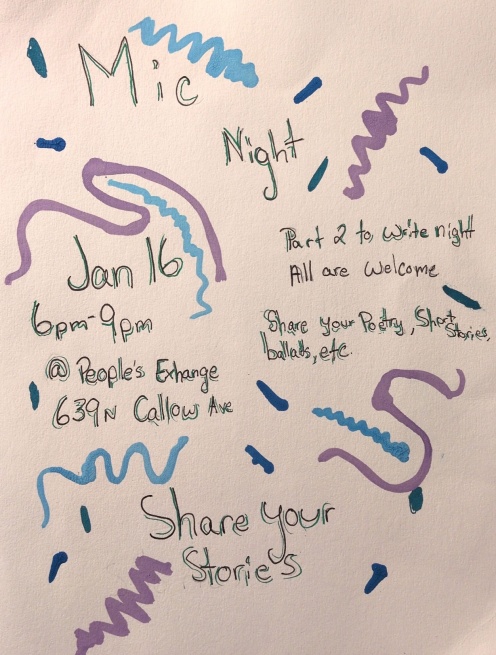 Mic
Night
Part 2 to write night
All are Welcome
Jan 16
6pm-9pm
@ People's Exhange
639 N Callow Ave
Share your Poetry, Short Stories,
ballads, etc.
Share your
Stories